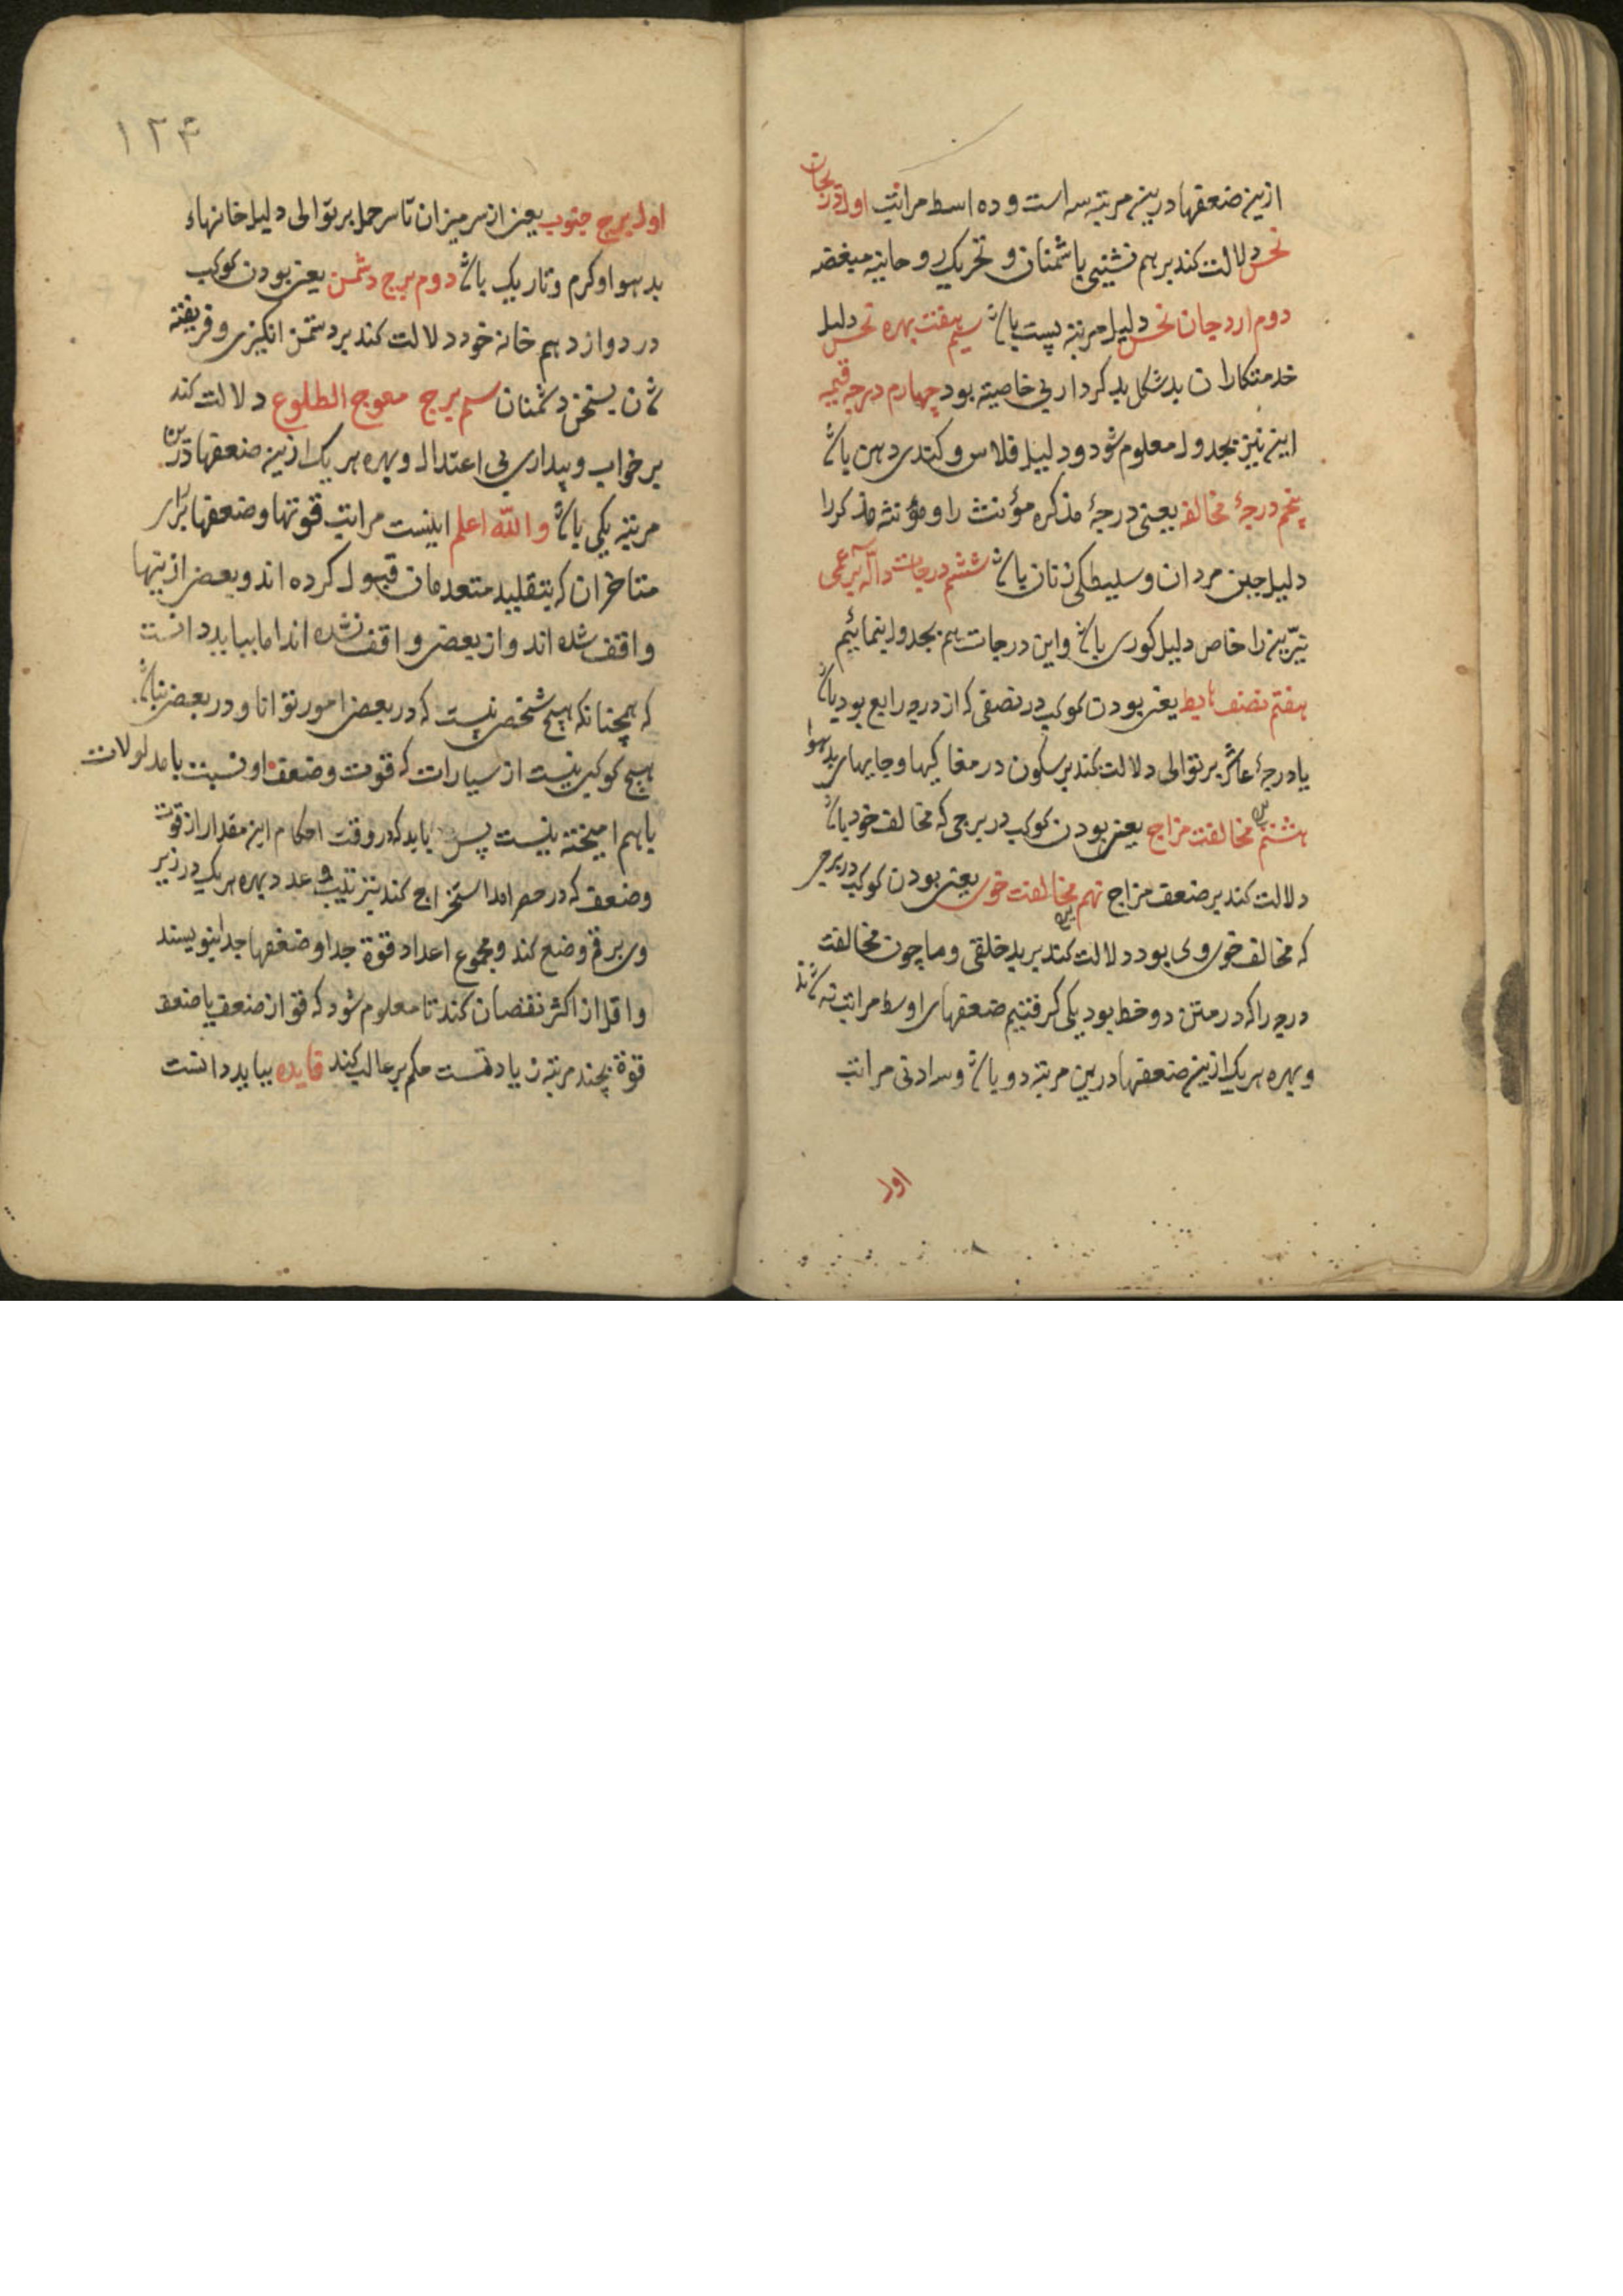 ازین ضعفها درین مرتبه سه است و ده اسط مراتب اول درجات
نحس دلالت کند بر هم نشینی با شمنان و تحریک روحانیه مبغضه
دوم اردجان نحس دلیل مرتبه پست باشد سیم هفت بهره نحس دلیل
خدمتکاران بد شکل بد کردار بی خاصیته بود چهارم درجه قیمه
این نیز بجدول معلوم شود و دلیل فلاس و کندی دهن باشد
پنجم درجهٔ مخالفه یعنی درجهٔ مذکره مؤنث را و مؤنثه مذکر را
دلیل جبن مردان و سلیطکی زنان باشد ششم درجات دالّه بر عمی
نیّرین را خاص دلیل کوری باشد و این درجات هم بجدول بنمائیم
هفتم نصف هابط یعنی بودن کوکب در نصفی که از درجه رابع بود یا
یا درجهٔ عاشر بر توالی دلالت کند بر سکون در مغاکیها و جایهای بد هوا
هشتم مخالفت مزاج یعنی بودن کوکب در برجی که مخالف خود باشد
دلالت کند بر ضعف مزاج نهم مخالفت خوی یعنی بودن کوکب در برجی
که مخالف خوی وی بود دلالت کند بر بد خلقی و ما چون مخالفت
درجه را که در متن دو خط بود یکی کرفتیم ضعفهای اوسط مراتب نه شد
و بهره هر یک ازین ضعفها درین مرتبه دو باشد و سه ادنی مراتب
اول
۱۲۴
اول برج جنوب یعنی از سر میزان تا سر حمل بر توالی دلیل خانهاء
بد هوا و کرم و تاریک باشد دوم برج دشمن یعنی بودن کوکب
در دوازدهم خانه خود دلالت کند بر دشمن انکیزی و فریفته
شدن بسخن دشمنان سیم برج معوج الطلوع دلالت کند
بر خواب و بیداری بی اعتدال و بهره هر یک ازین ضعفها درین
مرتبه یکی باشد والله اعلم اینست مراتب قوتها و ضعفها
متاخران که بتقلید متعدمان قبول کرده اند و بعضی ازینها
واقف شده اند و از بعضی واقف نشده اند اما بباید دانست
که همچنانکه هیچ شخصی نیست که در بعضی امور توانا و در بعضی نباشد
هیچ کوکبی نیست از سیارات که قوت و ضعف او نسبت با مدلولات
با هم امیخته نیست پس باید که در وقت احکام این مقدار از قوت
و ضعف که در حصر امد استخراج کند بترتیب و عدد بهره هر یک در زیر
وی برقم وضع کند و مجموع اعداد قوة جدا و ضعفها جدا بنویسند
و اقل از اکثر نقصان کند تا معلوم شود که قوة از ضعف یا ضعف
قوة بچند مرتبه زیادتست حکم بر غالب کند فایده بباید دانست